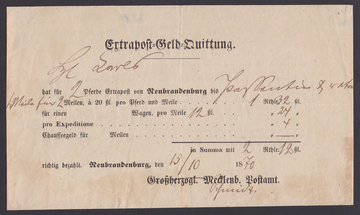 Extrapost-Geld-Quittung.
hat für 2 Pferde Extrapost von Neubrandenburg bis
für 2 Meilen, à 20 ßl. pro Pferd und Meile 1 Rthlr. 32 ßl.
für einen Wagen, pro Meile 12 ßl. " 24 "
pro Expeditione " 4 "
Chausseegeld für Meilen " — "
in Summa mit 2 Rthlr. 12 ßl.
richtig bezahlt. Neubrandenburg, den 15/10 1870
Großherzogl. Mecklenb. Postamt.